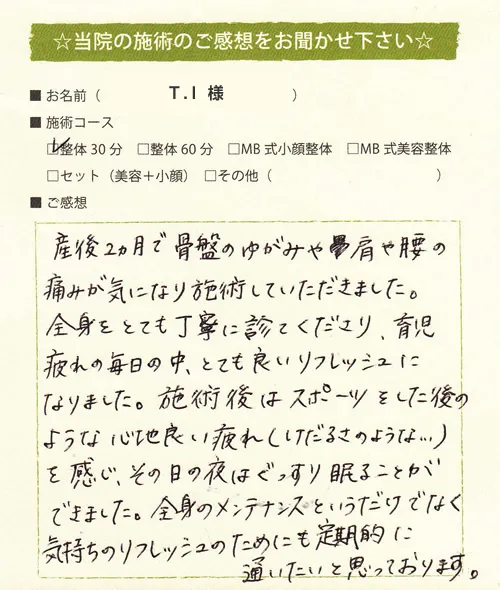 ☆当院の施術のご感想をお聞かせ下さい☆
■ お名前（ T.I 様 ）
■ 施術コース
☑整体 30 分 □整体 60 分 □MB 式小顔整体 □MB 式美容整体
□セット（美容＋小顔） □その他（ ）
■ ご感想
産後2ヵ月で骨盤のゆがみや肩や腰の
痛みが気になり施術していただきました。
全身をとても丁寧に診てくださり、育児
疲れの毎日の中、とても良いリフレッシュに
なりました。施術後はスポーツをした後の
ような心地良い疲れ(けだるさのような…)
を感じ、その日の夜はぐっすり眠ることが
できました。全身のメンテナンスというだけでなく
気持ちのリフレッシュのためにも定期的に
通いたいと思っております。